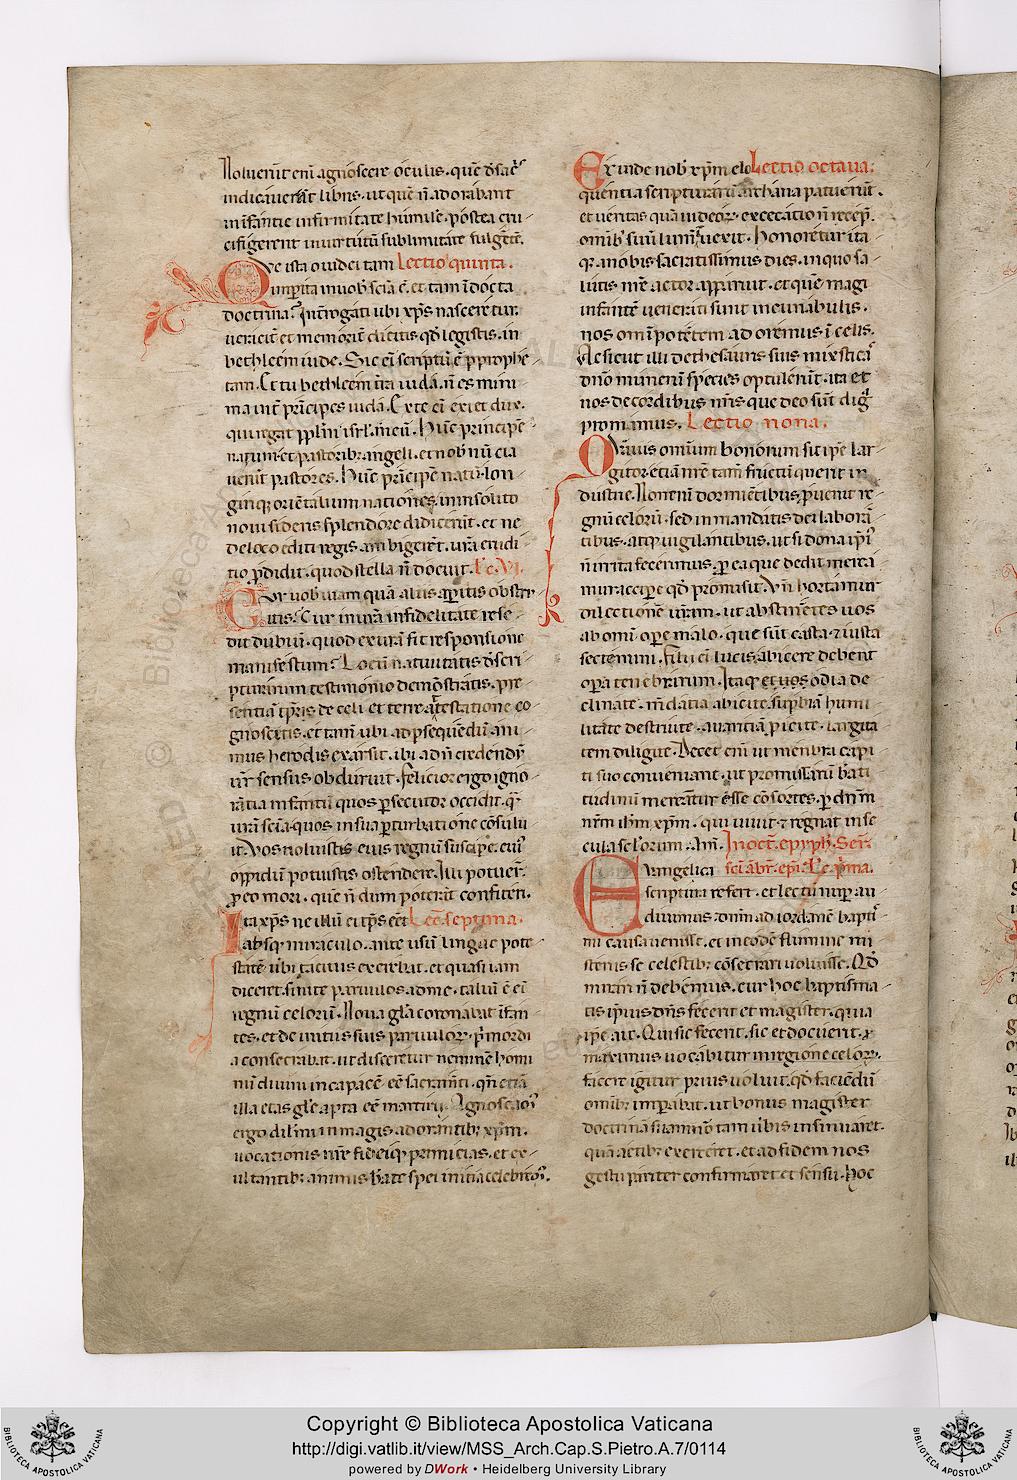 Noluerūt enī agnoscere oculis. quē d̄ sacs̄
indicaverat libris. ut quē ñ adorabant
in infantie infirmitate humilē. postea cru-
cifigerent in virtutū sublimitate fulgētē.
Que ista o iudei tam Lectio quinta.
imperita in vob̄ scīa ē. et tam īdocta
doctrina? Interrogati ubi xp̄s nasceretur
bethleem iude. Sic eī scriptū ē p̄ prophe-
tam. Et tu bethleem t̄ra iuda. ñ es mini-
ma int̄ prīcipes iuda. Ex te eī exiet dux.
qui regat pp̄lm̄ isrl̄ meū. Hūc principē
natum. et pastorib; angeli. et nob̄
venit pastores. Hūc prīcipē natū lon-
ginq; oriētalium nationes. in insolito
novi sideris splendore didicerūt. et ne
de loco editi regis ambigerēt. v̄ra erudi-
tio p̄didit. quod stella ñ docuit. Lc. VI.
Cur vob̄ viam quā aliis aperitis obstru-
itis? Cur in vr̄a infidelitate rese-
dit dubiū. quod ex vr̄a fit responsione
manifestum? Locū nativitatis d̄ scri-
pturarum testimonio demōstratis. pre-
sentiā tp̄ris de celi et terre atestatione co-
gnoscitis. et tam̄ ubi ad p̄sequēdū ani-
mus herodis exarsit. ibi ad ñ credendū
vr̄ sensus obduruit. Felicior ergo igno-
rātia infantū quos p̄secutor occidit. q̄
vr̄a scīa. quos in sua perturbatione cōsulu-
it. Vos noluistis eius regnū suscipe. cui
oppidū potuistis ostendere. Illi potuer̄
p̄ eo mori. quē ñ dum poterāt confiteri.
Ita xp̄s ne illū ei tp̄s eēt Lec̄. septima.
absq; miraculo. ante usū lingue pote-
statē ubi tacitus exercebat. et quasi iam
diceret. sinite parvulos ad me. taliū ē eī
regnū celorū. Nova gl̄a coronabat īfan-
tes. et de initiis suis parvulor̄. p̄mordi-
a consecrabat. ut disceretur neminē homi-
nū divini incapacē eē sacram̄ti. qn̄ etiā
illa etas gl̄e apta eēt martirii. Agnoscam̄
ergo dil̄mi in magis adorantib; xp̄m.
vocationis nr̄e fideiq; primicias. et ex-
ultantib; animis b̄ate spei initia celebrem̄.
Exinde nob̄ xp̄m elo- Lectio octava.
quentia scripturarū archana patuerūt.
et veritas quā iudeor̄. excecatio ñ recep̄.
omib; suū lumē uexit. Honoretur ita-
q; a nobis sacratissimus dies. in quo sa-
lutis nr̄e actor apparuit. et quē magi
infantē venerati sunt in cunabulis.
nos omīpotētem adoremus ī celis.
Ac sicut illi de thesauris suis mixticas
dn̄o munerū species optulerūt. ita et
nos de cordibus nr̄is que deo sūt diḡ
promamus. Lectio nona.
Quamvis omnium bonorum sit ipe lar-
gitor. etiā nr̄e tam̄ fructū querit in-
dustrie. Non enī dormiētibus p̄venit re-
gnū celorū. sed in mandatis dei laborā-
tibus. atq; vigilantibus. ut si dona ipi
ñ irrita fecerimus. p̄ ea que dedit merea-
mur accipe qd̄ promisit. Vn̄ hortamur
dilectionē vr̄am. ut abstinētes vos
ab omī ope malo. que sūt casta et iusta
sectemini. Filii eī lucis. abicere debent
opa tenebrarum. Itaq; et vos odia de-
clinate. mēdatia abicite. superbiā humi-
litate destruite. avaritiā p̄icite. largita-
tem diligite. Decet enī ut menbra capi-
ti suo conveniant. ut promissarū b̄ati-
tudinū mereātur esse cōsortes. p̄ dn̄m
nr̄m ih̄m xp̄m. qui vivit et regnat in se-
cula sc̄lorum. Am̄. In oct̄. epyph̄. Ser̄.
Evangelica sc̄i āb̄r. ep̄i. Lc̄. p̄ma.
scriptura refert. et lectū nup̄ au-
divimus: dn̄m ad iordanē bapti-
mi causa venisse. et in eodē flumine mi-
steriis se celestib; cōsecrari voluisse. Qd̄
mirari ñ debemus. cur hoc baptisma-
tis ipius dn̄s fecerit et magister. quia
ipe ait. Qui sic fecerit. sic et docuerit. et
maximus vocabitur in regione celor̄.
Facere igitur prius voluit. qd̄ faciēdū
omib; imperabat. ut bonus magister
doctrinā suam nō tam v̄bis insinuaret.
quā actib; exerceret. et ad fidem nos
gestu pariter confirmaret et sensu. Hoc
BIBLIOTECA APOSTOLICA VATICANA
Copyright © Biblioteca Apostolica Vaticana
http://digi.vatlib.it/view/MSS_Arch.Cap.S.Pietro.A.7/0114
powered by DWork • Heidelberg University Library
BIBLIOTECA APOSTOLICA VATICANA